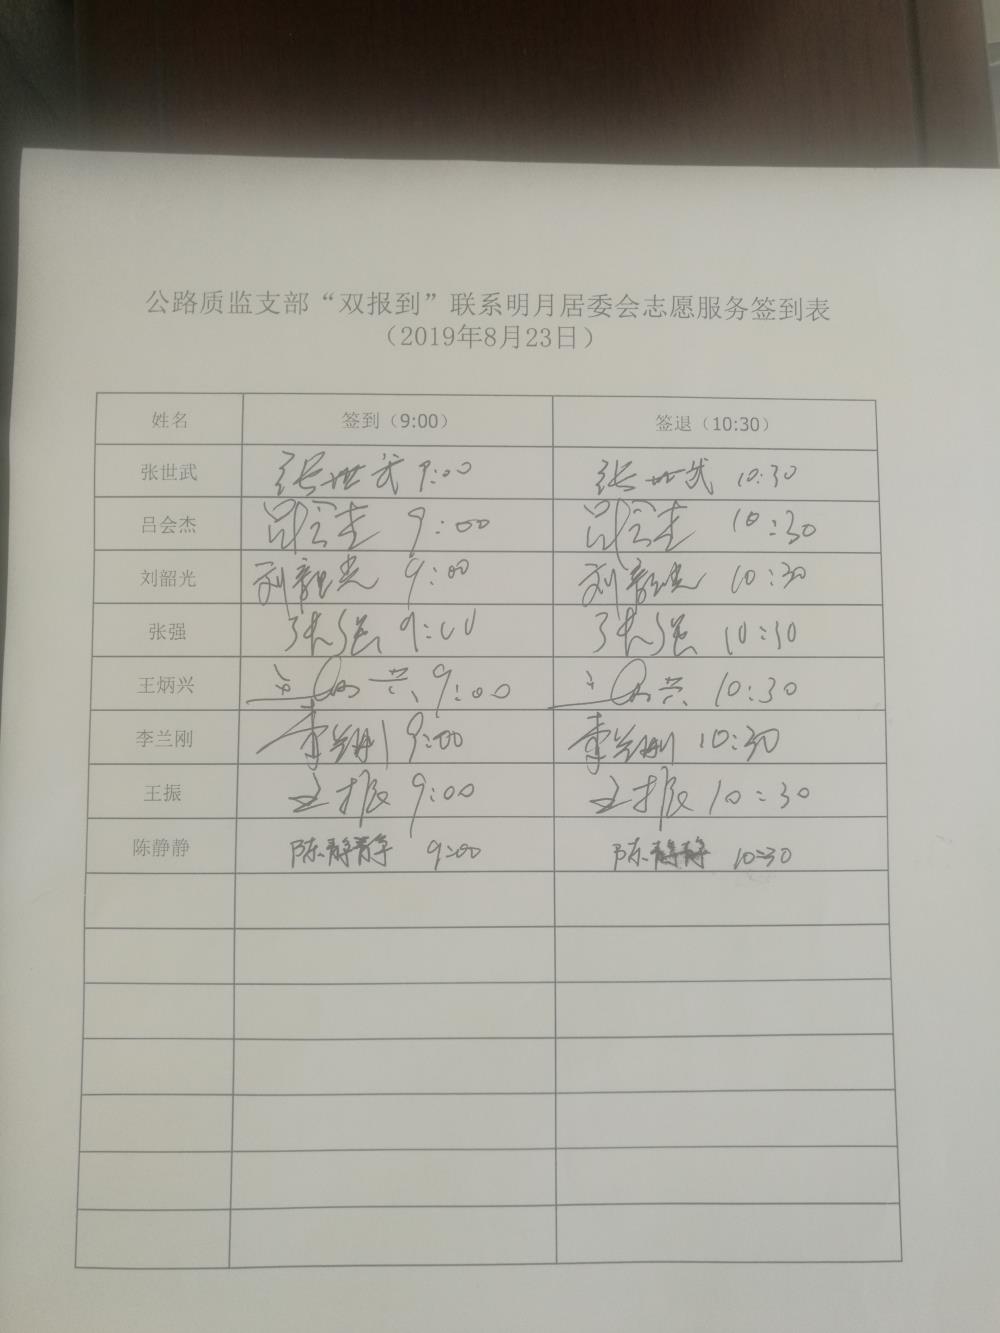 公路质监支部“双报到”联系明月居委会志愿服务签到表
（2019年8月23日）
姓名 签到（9:00） 签退（10:30）
张世武 张世武 9:00 张世武 10:30
吕会杰 吕会杰 9:00 吕会杰 10:30
刘韶光 刘韶光 9:00 刘韶光 10:30
张强 张强 9:00 张强 10:30
王炳兴 王炳兴 9:00 王炳兴 10:30
李兰刚 李兰刚 9:00 李兰刚 10:30
王振 王振 9:00 王振 10:30
陈静静 陈静静 9:00 陈静静 10:30